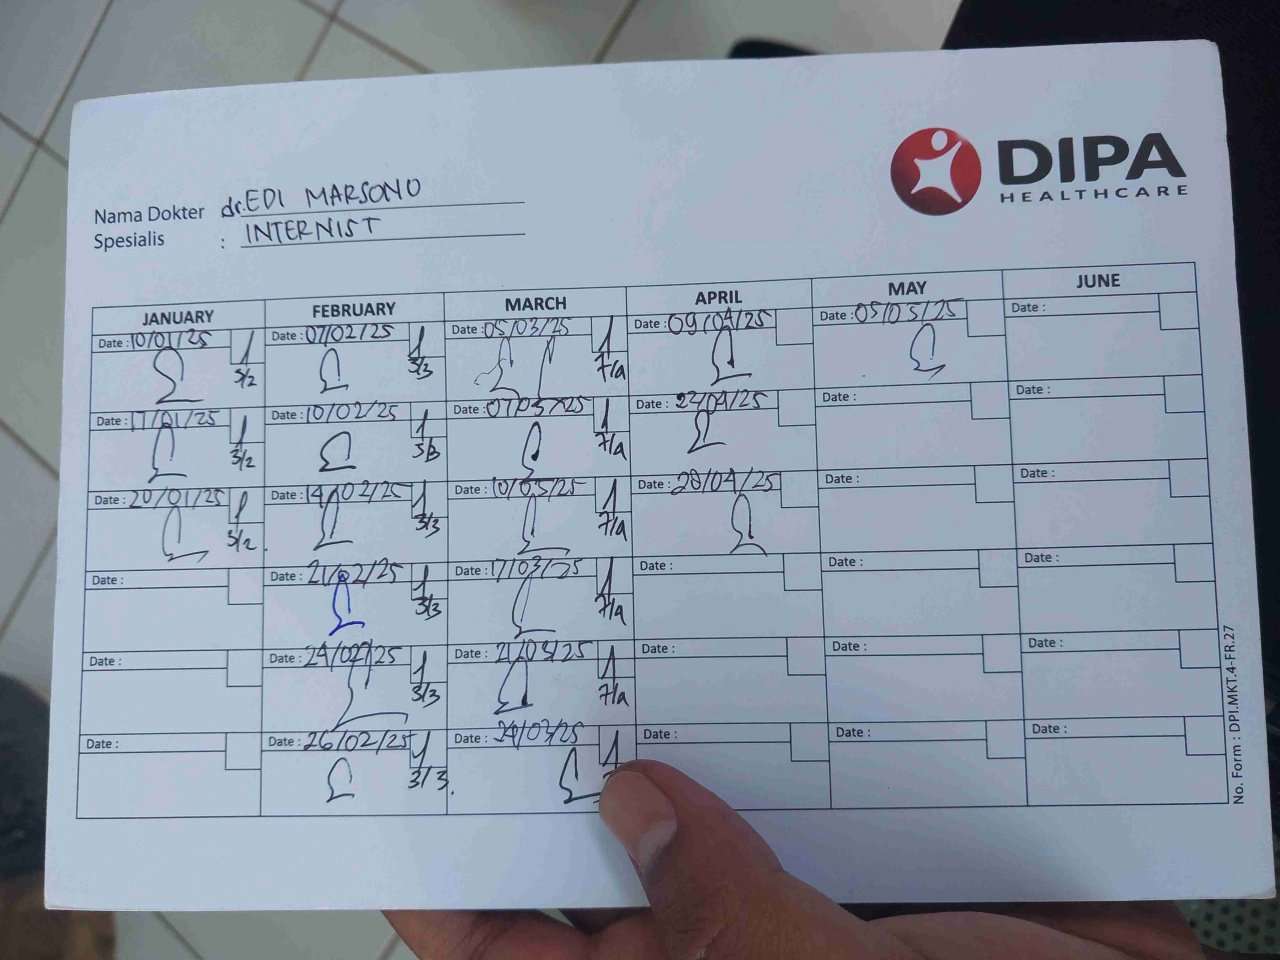 DIPA
HEALTHCARE
Nama Dokter dr. EDI MARSONO
Spesialis : INTERNIST
JANUARY FEBRUARY MARCH APRIL MAY JUNE
Date : 10/01/25 Date : 07/02/25 Date : 05/03/25 Date : 09/04/25 Date : 05/05/25 Date :
3/2 3/3 7/a
Date : 17/01/25 Date : 10/02/25 Date : 07/03/25 Date : 22/04/25 Date : Date :
3/2 3/3 7/a
Date : 20/01/25 Date : 14/02/25 Date : 10/03/25 Date : 28/04/25 Date : Date :
3/2 3/3 7/a
Date : Date : 21/02/25 Date : 17/03/25 Date : Date : Date :
3/3 7/a
Date : Date : 24/02/25 Date : 21/03/25 Date : Date : Date :
3/3 7/a
Date : Date : 26/02/25 Date : 24/03/25 Date : Date : Date :
3/3
No. Form : DPI.MKT.4-FR.27